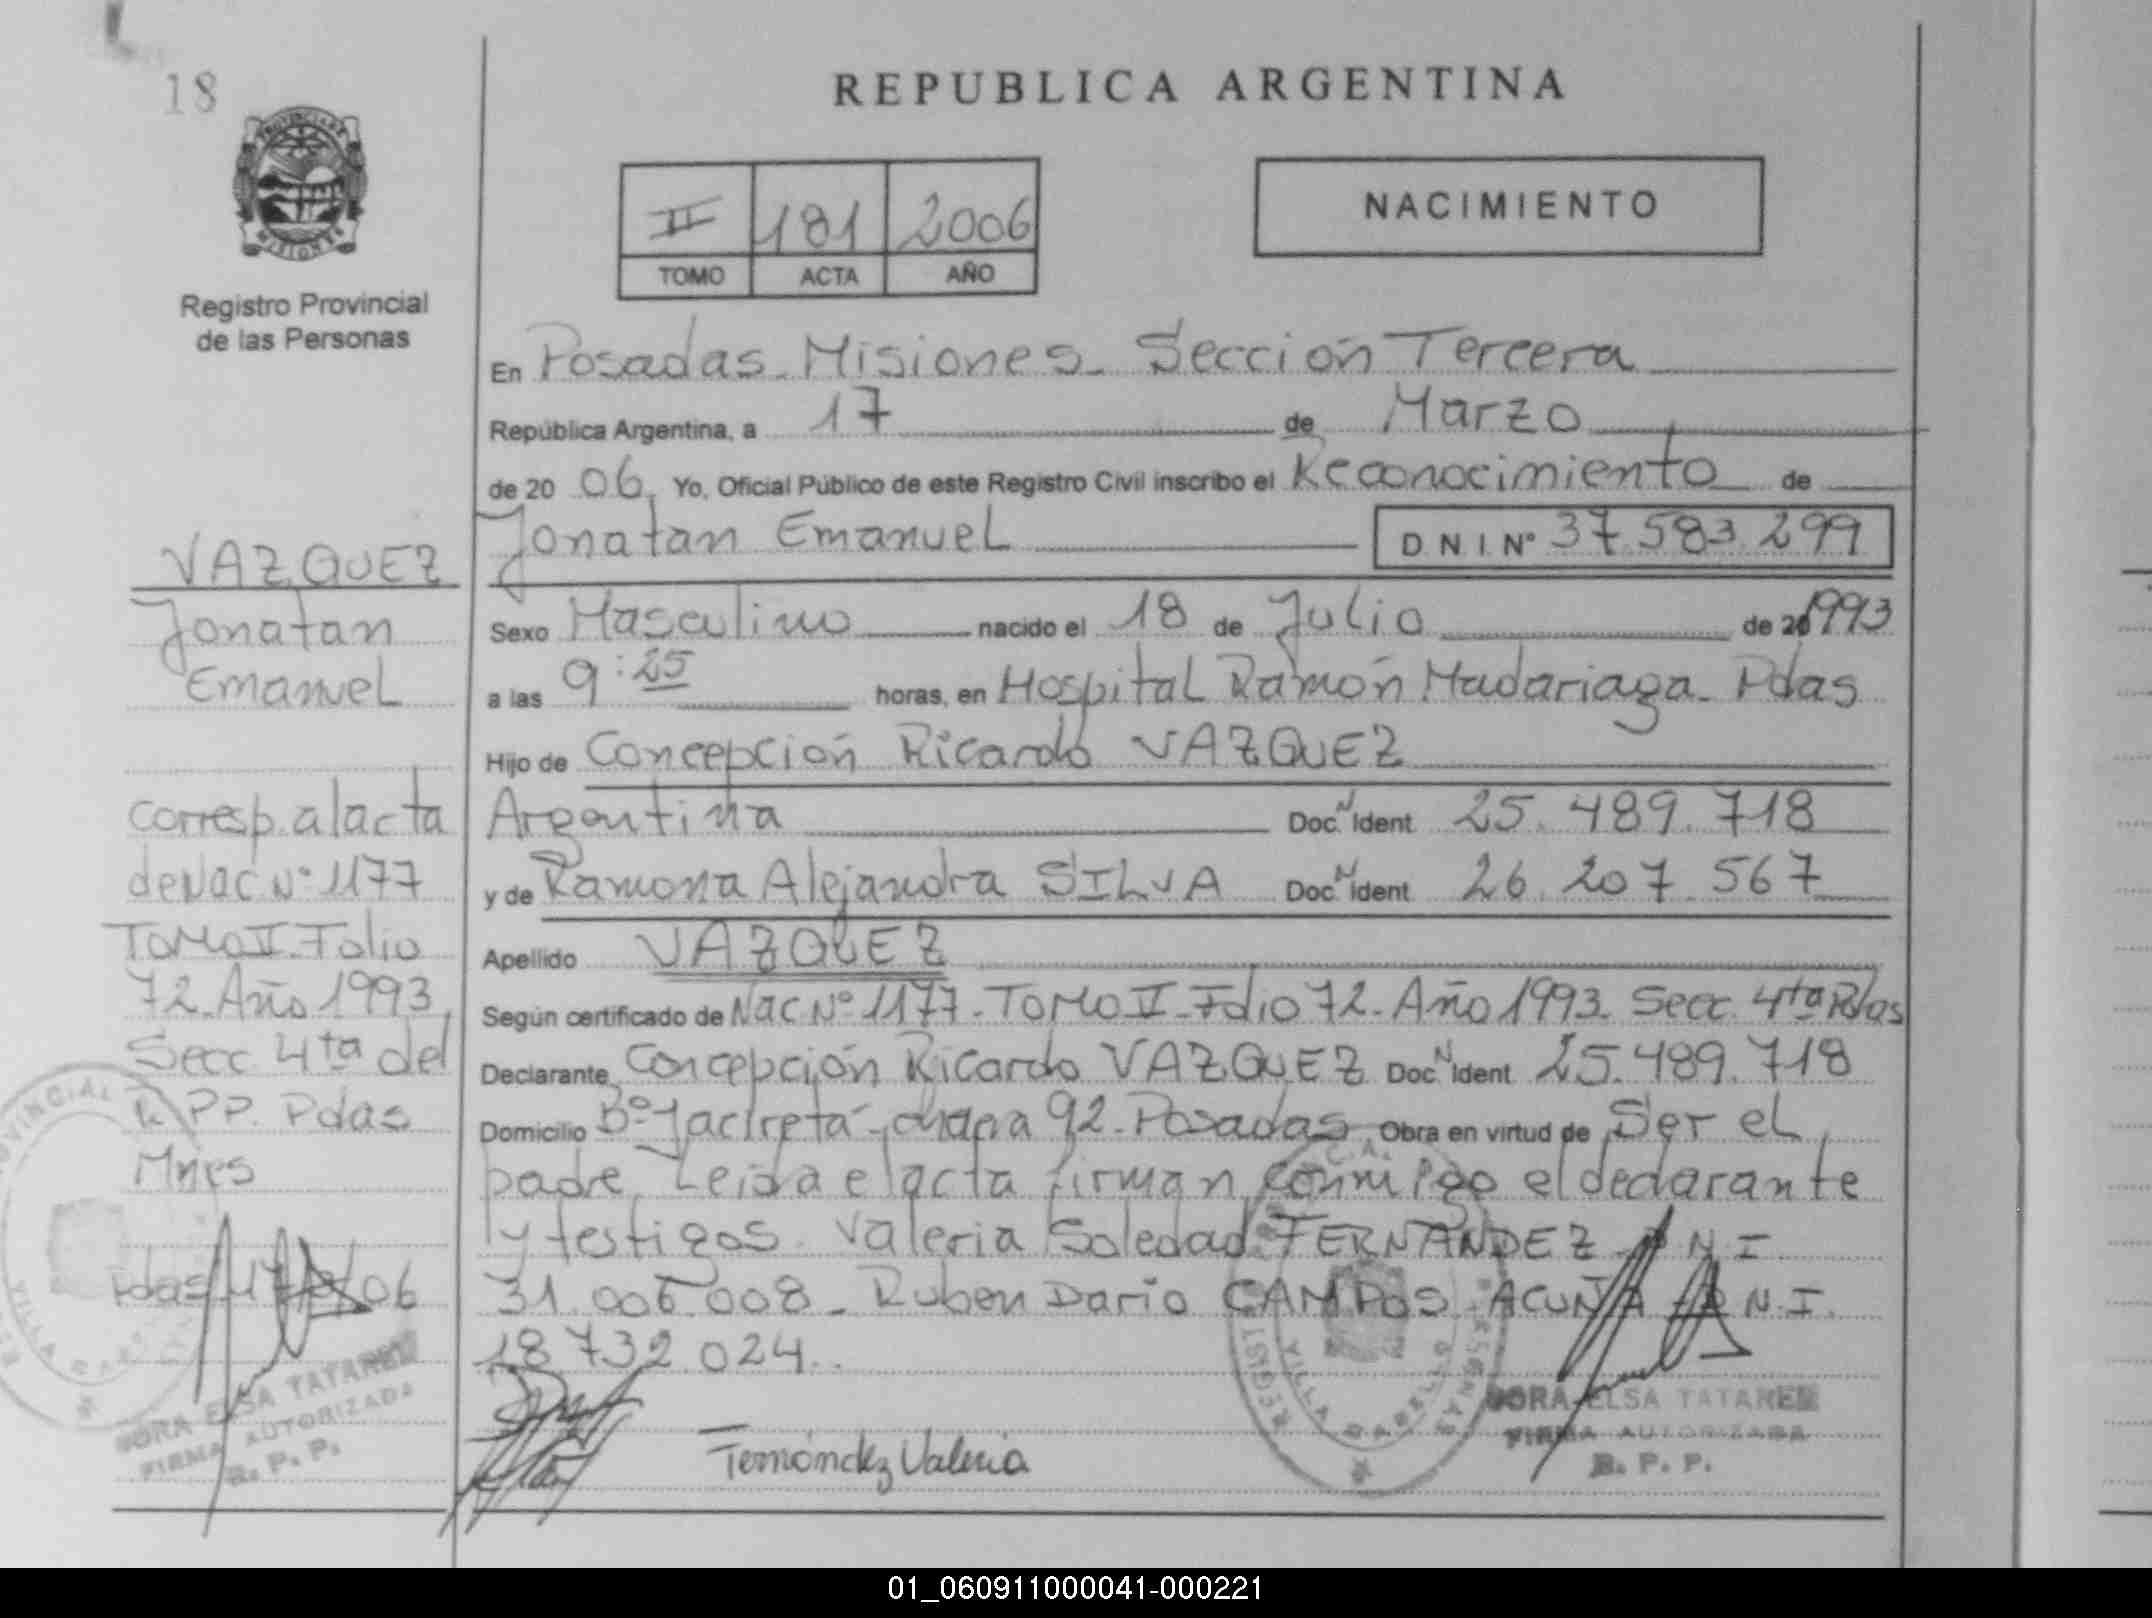 18
REPUBLICA ARGENTINA
II 181 2006
TOMO ACTA AÑO
NACIMIENTO
Registro Provincial
de las Personas
En Posadas - Misiones - Sección Tercera
República Argentina, a 17 de Marzo
de 20 06. Yo, Oficial Público de este Registro Civil inscribo el Reconocimiento de
Jonatan Emanuel D N I Nº 37.583.299
Sexo Masculino nacido el 18 de Julio de 1993
a las 9:25 horas, en Hospital Ramón Madariaga - Pdas
Hijo de Concepción Ricardo VAZQUEZ
Argentina Doc. N Ident 25.489.718
y de Ramona Alejandra SILVA Doc. N Ident 26.207.567
Apellido VAZQUEZ
Según certificado de Nac Nº 1177 - TOMO II - Folio 72 - Año 1993 Secc. 4ta Pdas
Declarante Concepción Ricardo VAZQUEZ Doc. N Ident 25.489.718
Domicilio Bº Yaciretá - chacra 92 - Posadas Obra en virtud de Ser el
padre, Leida el acta firman conmigo el declarante
y testigos. Valeria Soledad FERNANDEZ D.N.I
31.006.008 - Ruben Dario CAMPOS ACUÑA D.N.I.
18 732 024.
Fernández Valeria
VAZQUEZ
Jonatan
Emanuel
Corresp. al acta
de Nac Nº 1177
TOMO II - Folio
72 - Año 1993
Secc 4ta del
R.PP. Pdas
Mnes
Pdas 17/3/06
ELSA TATAREN
FIRMA AUTORIZADA
R. P. P.
ELSA TATAREN
FIRMA AUTORIZADA
R. P. P.
VILLA CABELLO
01_060911000041-000221